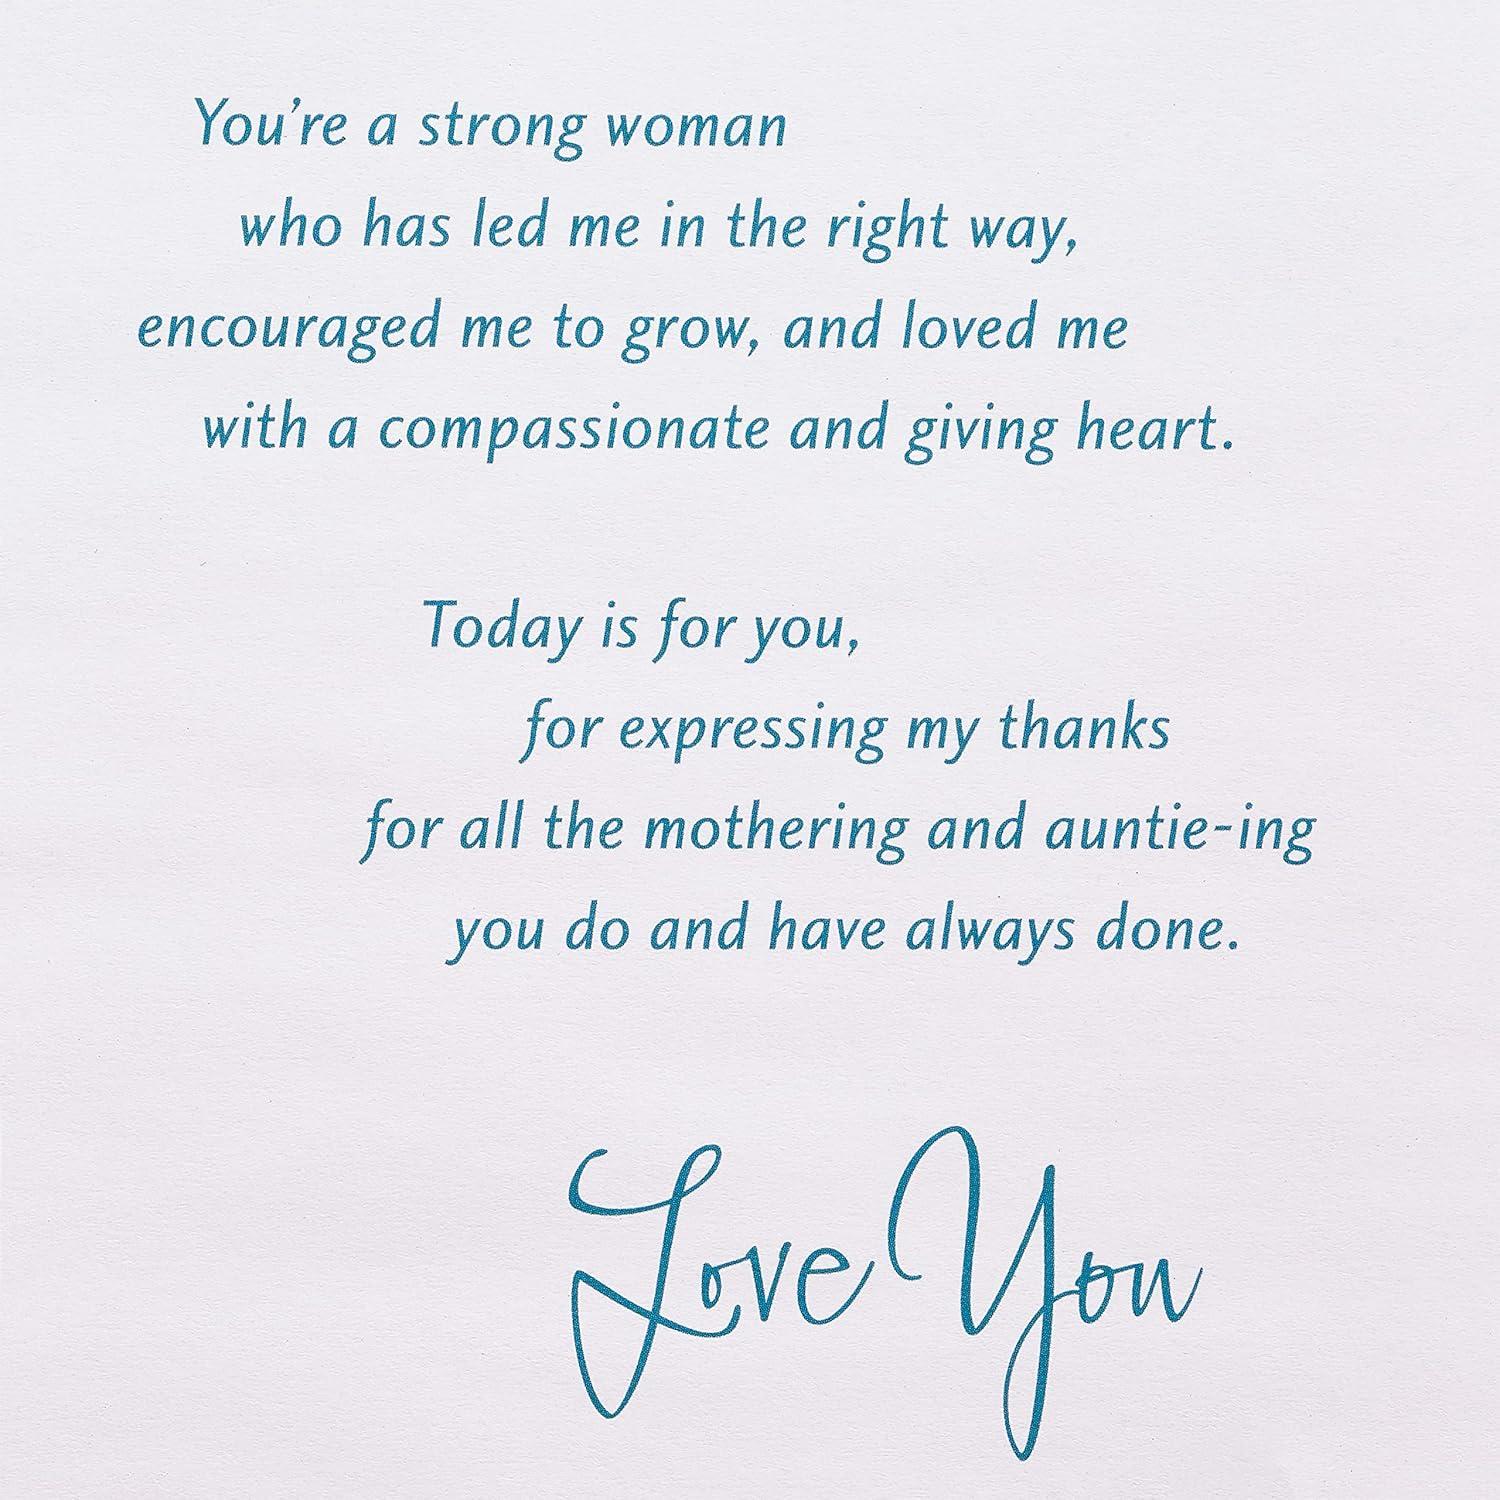 You're a strong woman
who has led me in the right way,
encouraged me to grow, and loved me
with a compassionate and giving heart.
Today is for you,
for expressing my thanks
for all the mothering and auntie-ing
you do and have always done.
Love You